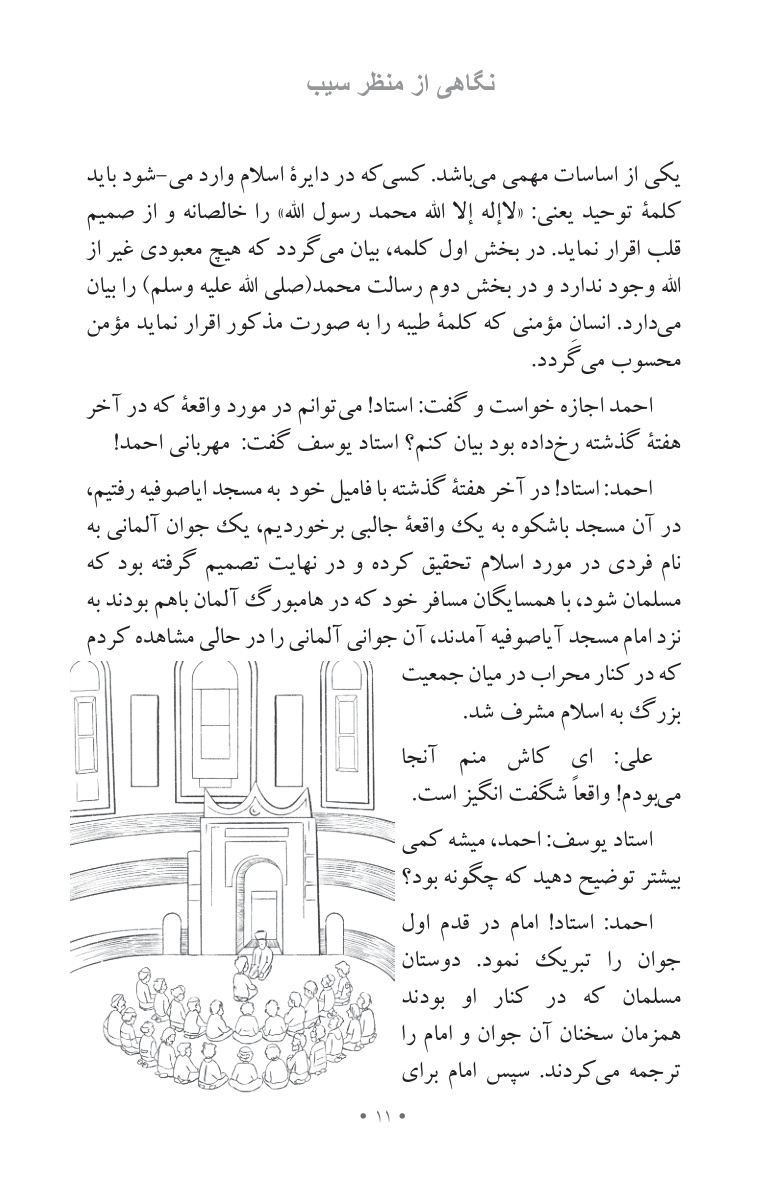 نگاهی از منظر سیب
یکی از اساسات مهمی می‌باشد. کسی‌که در دایرهٔ اسلام وارد می-شود باید
کلمهٔ توحید یعنی: «لاإله إلا الله محمد رسول الله» را خالصانه و از صمیم
قلب اقرار نماید. در بخش اول کلمه، بیان می‌گردد که هیچ معبودی غیر از
الله وجود ندارد و در بخش دوم رسالت محمد(صلی الله علیه وسلم) را بیان
می‌دارد. انسانِ مؤمنی که کلمهٔ طیبه را به صورت مذکور اقرار نماید مؤمن
محسوب می‌گَردد.
احمد اجازه خواست و گفت: استاد! می‌توانم در مورد واقعهٔ که در آخر
هفتهٔ گذشته رخ‌داده بود بیان کنم؟ استاد یوسف گفت: مهربانی احمد!
احمد: استاد! در آخر هفتهٔ گذشته با فامیل خود به مسجد ایاصوفیه رفتیم،
در آن مسجد باشکوه به یک واقعهٔ جالبی برخوردیم، یک جوان آلمانی به
نام فردی در مورد اسلام تحقیق کرده و در نهایت تصمیم گرفته بود که
مسلمان شود، با همسایگان مسافر خود که در هامبورگ آلمان باهم بودند به
نزد امام مسجد آیاصوفیه آمدند، آن جوانی آلمانی را در حالی مشاهده کردم
که در کنار محراب در میان جمعیت
بزرگ به اسلام مشرف شد.
علی: ای کاش منم آنجا
می‌بودم! واقعاً شگفت انگیز است.
استاد یوسف: احمد، میشه کمی
بیشتر توضیح دهید که چگونه بود؟
احمد: استاد! امام در قدم اول
جوان را تبریک نمود. دوستان
مسلمان که در کنار او بودند
همزمان سخنان آن جوان و امام را
ترجمه می‌کردند. سپس امام برای
• ١١ •